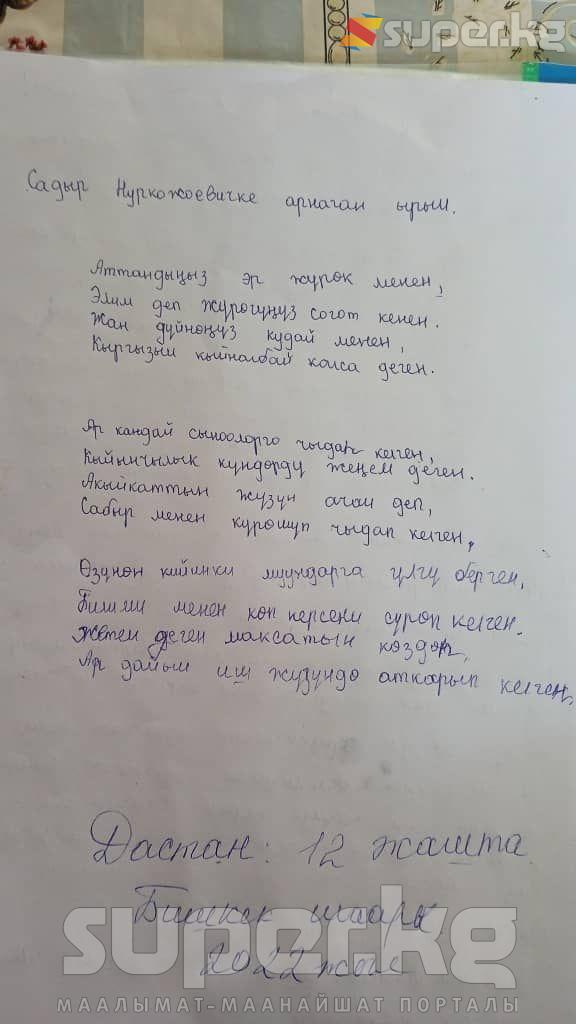 superkg
Садыр Нуркожоевичке арнаган ырым.
Аттандыңыз эр жүрөк менен,
Элим деп жүрөгүңүз согот кенен.
Жан дүйнөңүз кудай менен,
Кыргызым кыйналбай калса деген.
Ар кандай сыноолорго чыдап келген,
Кыйынчылык күндөрдү жеңем деген.
Акыйкаттын жүзүн ачам деп,
Сабыр менен күрөшүп чыдап келген,
Өзүнөн кийинки муундарга үлгү берген,
Билими менен көп нерсени сүрөп келген.
Жетем деген максатын көздөп,
Ар дайым иш жүзүндө аткарып келген,
Дастан: 12 жашта
Бишкек шаары
2022 жыл
superkg
МААЛЫМАТ-МААНАЙШАТ ПОРТАЛЫ